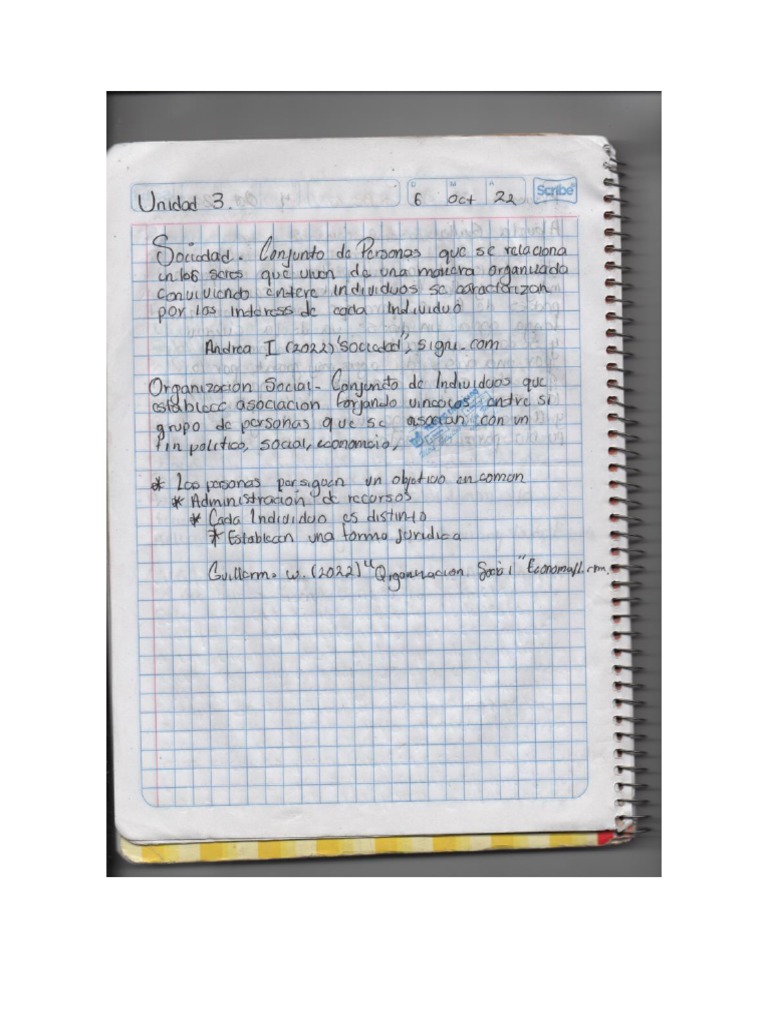 Unidad 3.
D M A
6 Oct 22
Scribe
Sociedad. Conjunto de Personas que se relaciona
en los seres que viven de una manera organizada
conviviendo entere individuos se caracterizan
por los interess de cada Individuo
Andrea I (2022) "Sociedad", signi.com
Organizacion Social - Conjunto de Individuos que
establece asociacion forjando vinculos entre si
grupo de personas que se asocian con un
fin politico, social, economico,
* Las personas persiguen un objetivo en comun
* Administracion de recursos
* Cada Individuo es distinto
* Establecen una forma juridica
Guillermo w. (2022) "Organizacion Social"